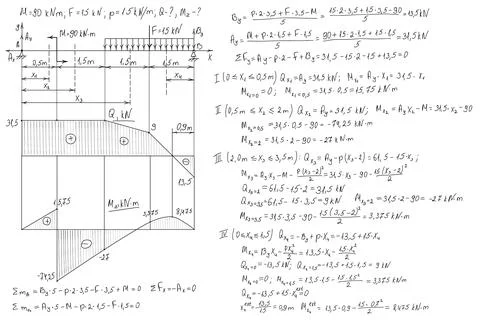 M=90 kN·m; F=15 kN; p=15 kN/m; Q-?, Mz-?
y
Ay
M=90 kN·m
F=15 kN
By
A
Ax
B
x
0,5m
1,5m
1,5m
1,5m
x1
x2
x3
x4
Q, kN
31,5
+
9
0,9m
−
13,5
15,75
Mz, kN·m
3,375
8,475
+
−
-27
-74,25
Σ mA = By·5 - p·2·3,5 - F·3,5 + M = 0
Σ Fx = -Ax = 0
Σ mB = Ay·5 - M - p·2·1,5 - F·1,5 = 0
By = (p·2·3,5 + F·3,5 - M)/5 = (15·2·3,5 + 15·3,5 - 90)/5 = 13,5 kN
Ay = (M + p·2·1,5 + F·1,5)/5 = (90 + 15·2·1,5 + 15·1,5)/5 = 31,5 kN
Σ Fy = Ay - p·2 - F + By = 31,5 - 15·2 - 15 + 13,5 = 0
I (0 ≤ x1 ≤ 0,5m) Qx1 = Ay = 31,5 kN; Mx1 = Ay·x1 = 31,5·x1
Mx1=0 = 0; Mx1=0,5 = 31,5·0,5 = 15,75 kN·m
II (0,5m ≤ x2 ≤ 2m) Qx2 = Ay = 31,5 kN; Mx2 = Ay x2 - M = 31,5·x2 - 90
Mx2=0,5 = 31,5·0,5 - 90 = -74,25 kN·m
Mx2=2 = 31,5·2 - 90 = -27 kN·m
III (2,0m ≤ x3 ≤ 3,5m): Qx3 = Ay - p(x3-2) = 61,5 - 15·x3;
Mx3 = Ay x3 - M - p(x3-2)²/2 = 31,5·x3 - 90 - 15(x3-2)²/2
Qx3=2 = 61,5 - 15·2 = 31,5 kN
Qx3=3,5 = 61,5 - 15·3,5 = 9 kN Mx3=2 = 31,5·2 - 90 = -27 kN·m
Mx3=3,5 = 31,5·3,5 - 90 - 15(3,5-2)²/2 = 3,375 kN·m
IV (0 ≤ x4 ≤ 1,5) Qx4 = -By + p·x4 = -13,5 + 15·x4
Mx4 = By x4 - px4²/2 = 13,5·x4 - 15·x4²/2
Qx4=0 = -13,5 kN; Qx4=1,5 = -13,5 + 15·1,5 = 9 kN
Mx4=0 = 0; Mx4=1,5 = 13,5·1,5 - 15·1,5²/2 = 3,375 kN·m
Qx4 = -13,5 + 15·x4ext = 0
x4ext = 13,5/15 = 0,9m; Mx4ext = 13,5·0,9 - 15·0,9²/2 = 8,475 kN·m